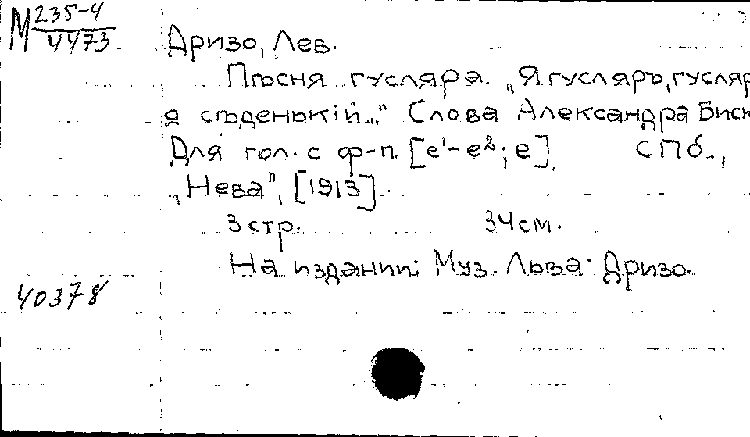 М 235-4
4473
Дризо, Лев.
Пѣсня гусляра. „Я гусляръ, гусляр
я сѣденькій..." Слова Александра Биск
Для гол. с ф-п. [e¹-e²; e]. СПб.,
„Нева", [1913].
3 стр. 34 см.
На издании: Муз. Льва Дризо.
40378